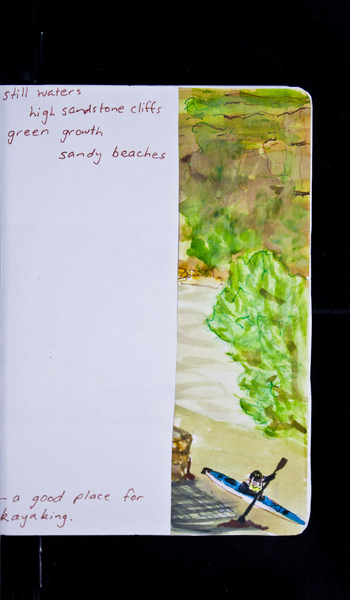 still waters
high sandstone cliffs
green growth
sandy beaches
- a good place for
kayaking.